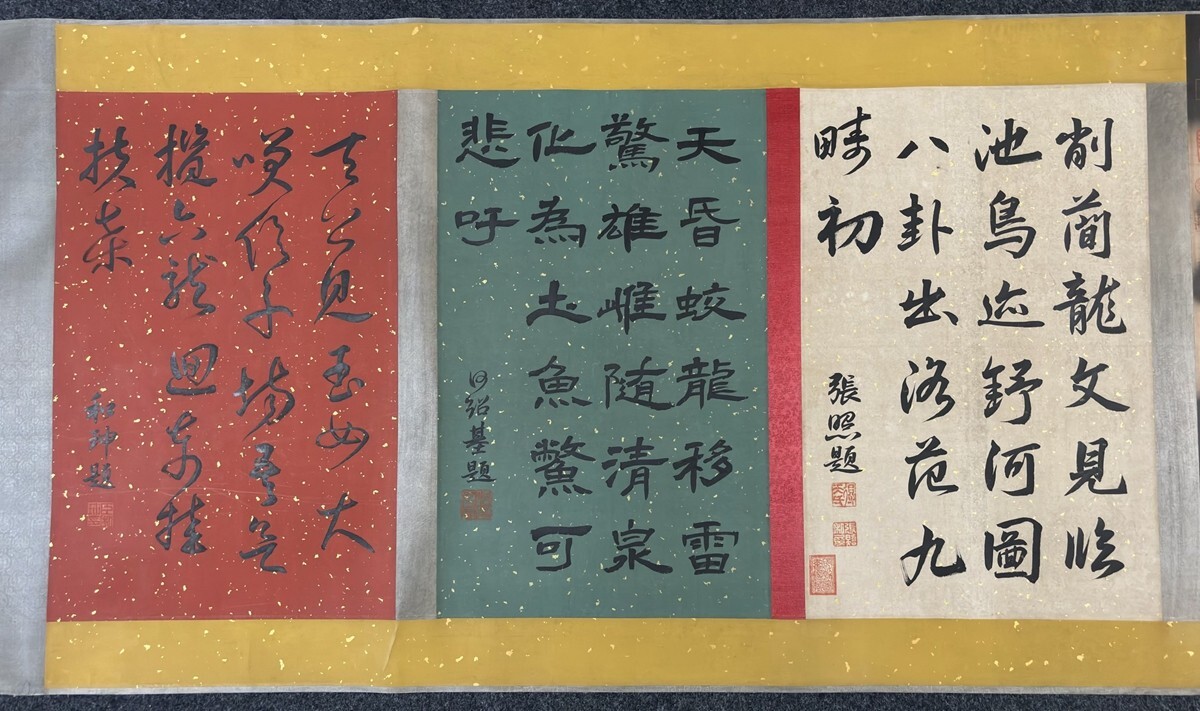 削簡龍文見臨
池鳥迹舒河圖
八卦出洛范九
畴初
張照題
天昏蛟龍移雷
驚雄雌随清泉
化為土魚鱉可
悲吁
何紹基題
天公見玉女大
笑億千場吾欲
攬六龍迴車挂
扶桑
和珅題